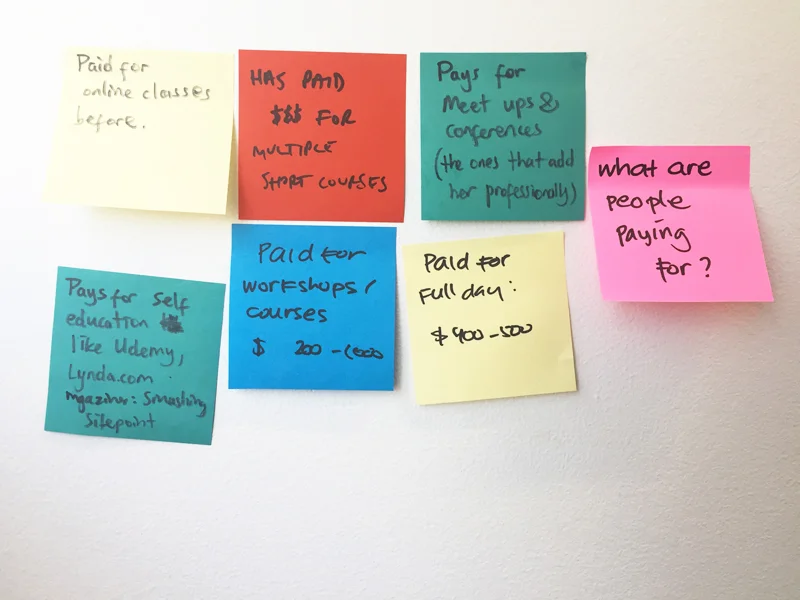 Paid for
online classes
before.
HAS PAID
$$$ FOR
MULTIPLE
SHORT COURSES
Pays for
Meet ups &
conferences
(the ones that add
her professionally)
what are
people
paying
for?
Pays for self
education
like Udemy,
Lynda.com
mgazines: Smashing
Sitepoint
Paid for
workshops/
courses
$ 200-1000
Paid for
Full day:
$400-500